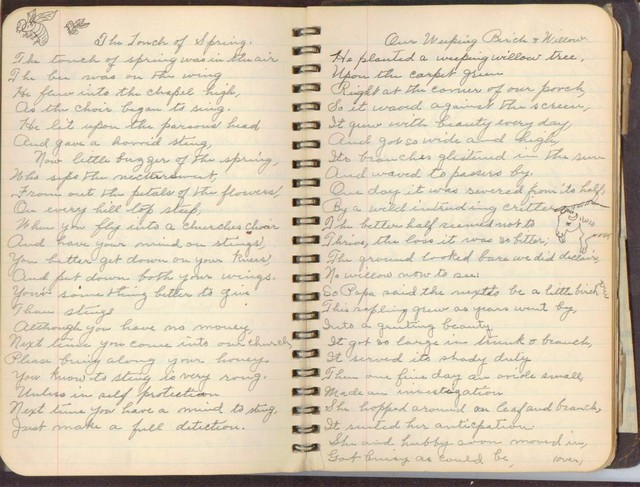 The Touch of Spring.
The touch of spring was in the air
The bee was on the wing
He flew into the chapel high,
As the choir began to sing.
He lit upon the parsons head
And gave a horrid sting,
Now little bugger of the spring
Who sips the nectar sweet,
From out the petals of the flowers,
On every hill top steep,
When you fly into a churches choir
And have your mind on stings,
You better get down on your knees,
And put down both your wings.
Your something better to give
Than stings
Although you have no money,
Next time you come into our church
Please bring along your honey.
You know to sting is very rong.
Unless in self protection
Next time you have a mind to sting,
Just make a full detection.
Our Weeping Birch & Willow
He planted a weeping willow tree,
Upon the carpet green
Right at the corner of our porch
So it waved against the screen,
It grew with beauty every day
And got so wide and high,
Its branches glistened in the sun
And waved to passers by.
One day it was severed from its half,
By a wild intruding critter
The better half seemed not to
Thrive, the loss it was so bitter,
The ground looked bare we did
No willow now to see.
So Papa said the next to be a little birch
This sapling grew as years went by,
Into a beauty
It got so large in trunk & branch,
It served its shady duty
Then one fine day an oriole small,
Made an investigation
She hopped around on leaf and branch,
It suited her anticpation
She and hubby soon moved in,
Got buisy as could be, (over)